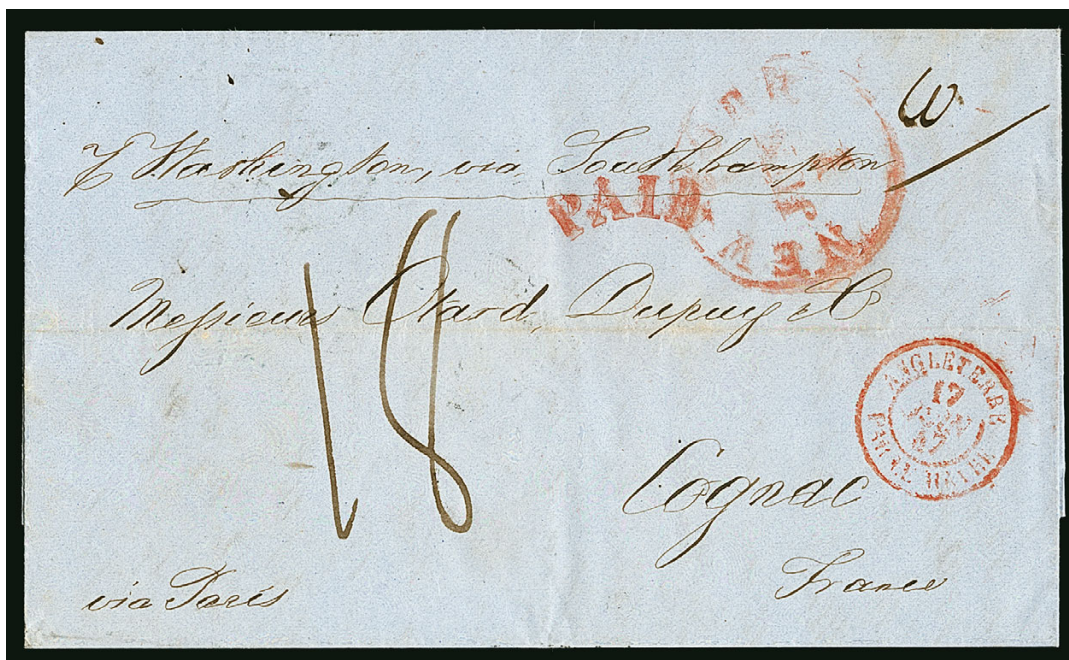 W
p Washington, via Southhampton
PAID
NEW YORK
Messieurs Otard, Dupuy & Co
18
ANGLETERRE
17
PAR LE HAVRE
Cognac
France
via Paris